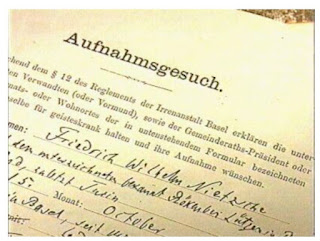 Aufnahmsgesuch.
chend dem § 12 des Reglements der Irrenanstalt Basel erklären die unter-
ten Verwandten (oder Vormund), sowie der Gemeinderaths-Präsident oder
mats- oder Wohnortes der in untenstehendem Formular bezeichneten
nselbe für geisteskrank halten und ihre Aufnahme wünschen.
men: Friedrich Wilhelm Nietzsche
dem unterzeichneten
Monat: October
Basel, seit